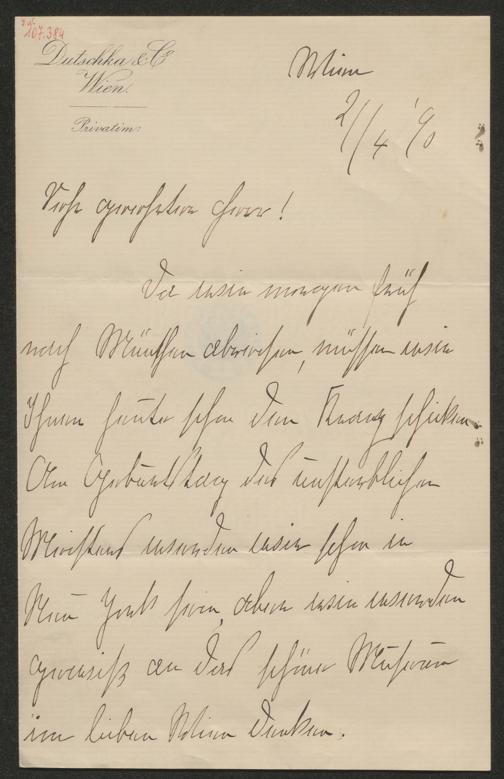 107.384
Dutschka & Co
Wien.
Privatim:
Wien
2/4 90
Sehr geehrter Herr!
Da wir morgen früh
nach München abreisen, müssen wir
Ihnen heute schon den schicken.
Am Geburtstag des unsterblichen
Meisters werden wir schon in
New York sein, aber wir werden
gewiß an das schöne Museum
im lieben Wien denken.